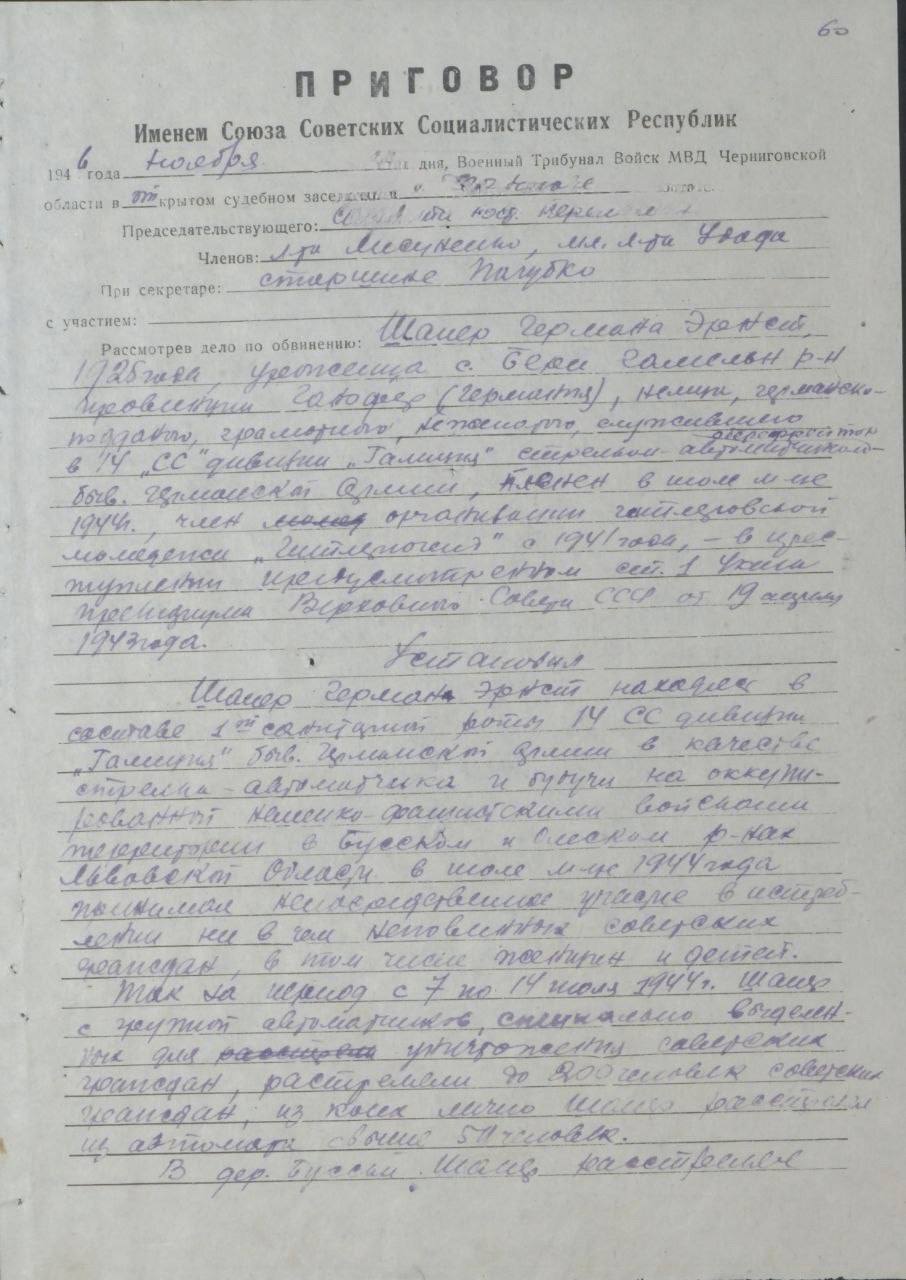 60
ПРИГОВОР
Именем Союза Советских Социалистических Республик
1946 года ноября дня, Военный Трибунал Войск МВД Черниговской
области в открытом судебном заседании в составе:
Председательствующего: юст.
Членов: л-та Лисуненко, мл. л-та
При секретаре: старшине
с участием:
Рассмотрев дело по обвинению: Шапер Германа Эрнст,
1925 года, уроженца с. р-н
провинции Гановер (Германия), немца, германско-
подданого, грамотного, нежанатого, служившего
в 14 „СС" дивизии „Галиция" стрелком-автоматчиком
быв. германской армии, пленен в июле м-це
1944г., член организации гитлеровской
молодежи „Гитлерюгенд" с 1941 года, – в прес-
туплении предусмотренном ст. 1 Указа
президиума Верховного Совета СССР от 19 апреля
1943 года.
Установил
Шапер Герман Эрнст находясь в
составе 1ой санитарной роты 14 СС дивизии
„Галиция" быв. Германской армии в качестве
стрелка-автоматчика и будучи на оккупи-
рованной немецко-фашистскими войсками
территории в Бусском и Олеском р-нах
Львовской Области в июле м-це 1944 года
принимал непосредственное участие в истреб-
лении ни в чем неповинных советских
граждан, в том числе женщин и детей.
Так за период с 7 по 14 июля 1944г. Шапер
с группой автоматчиков, специально выделен-
ных для расстрела уничтожения советских
граждан, растреляли до 200 человек советских
граждан, из коих лично Шапер расстрелял
из автомата свыше 50 человек.
В дер. Шапер расстрелял